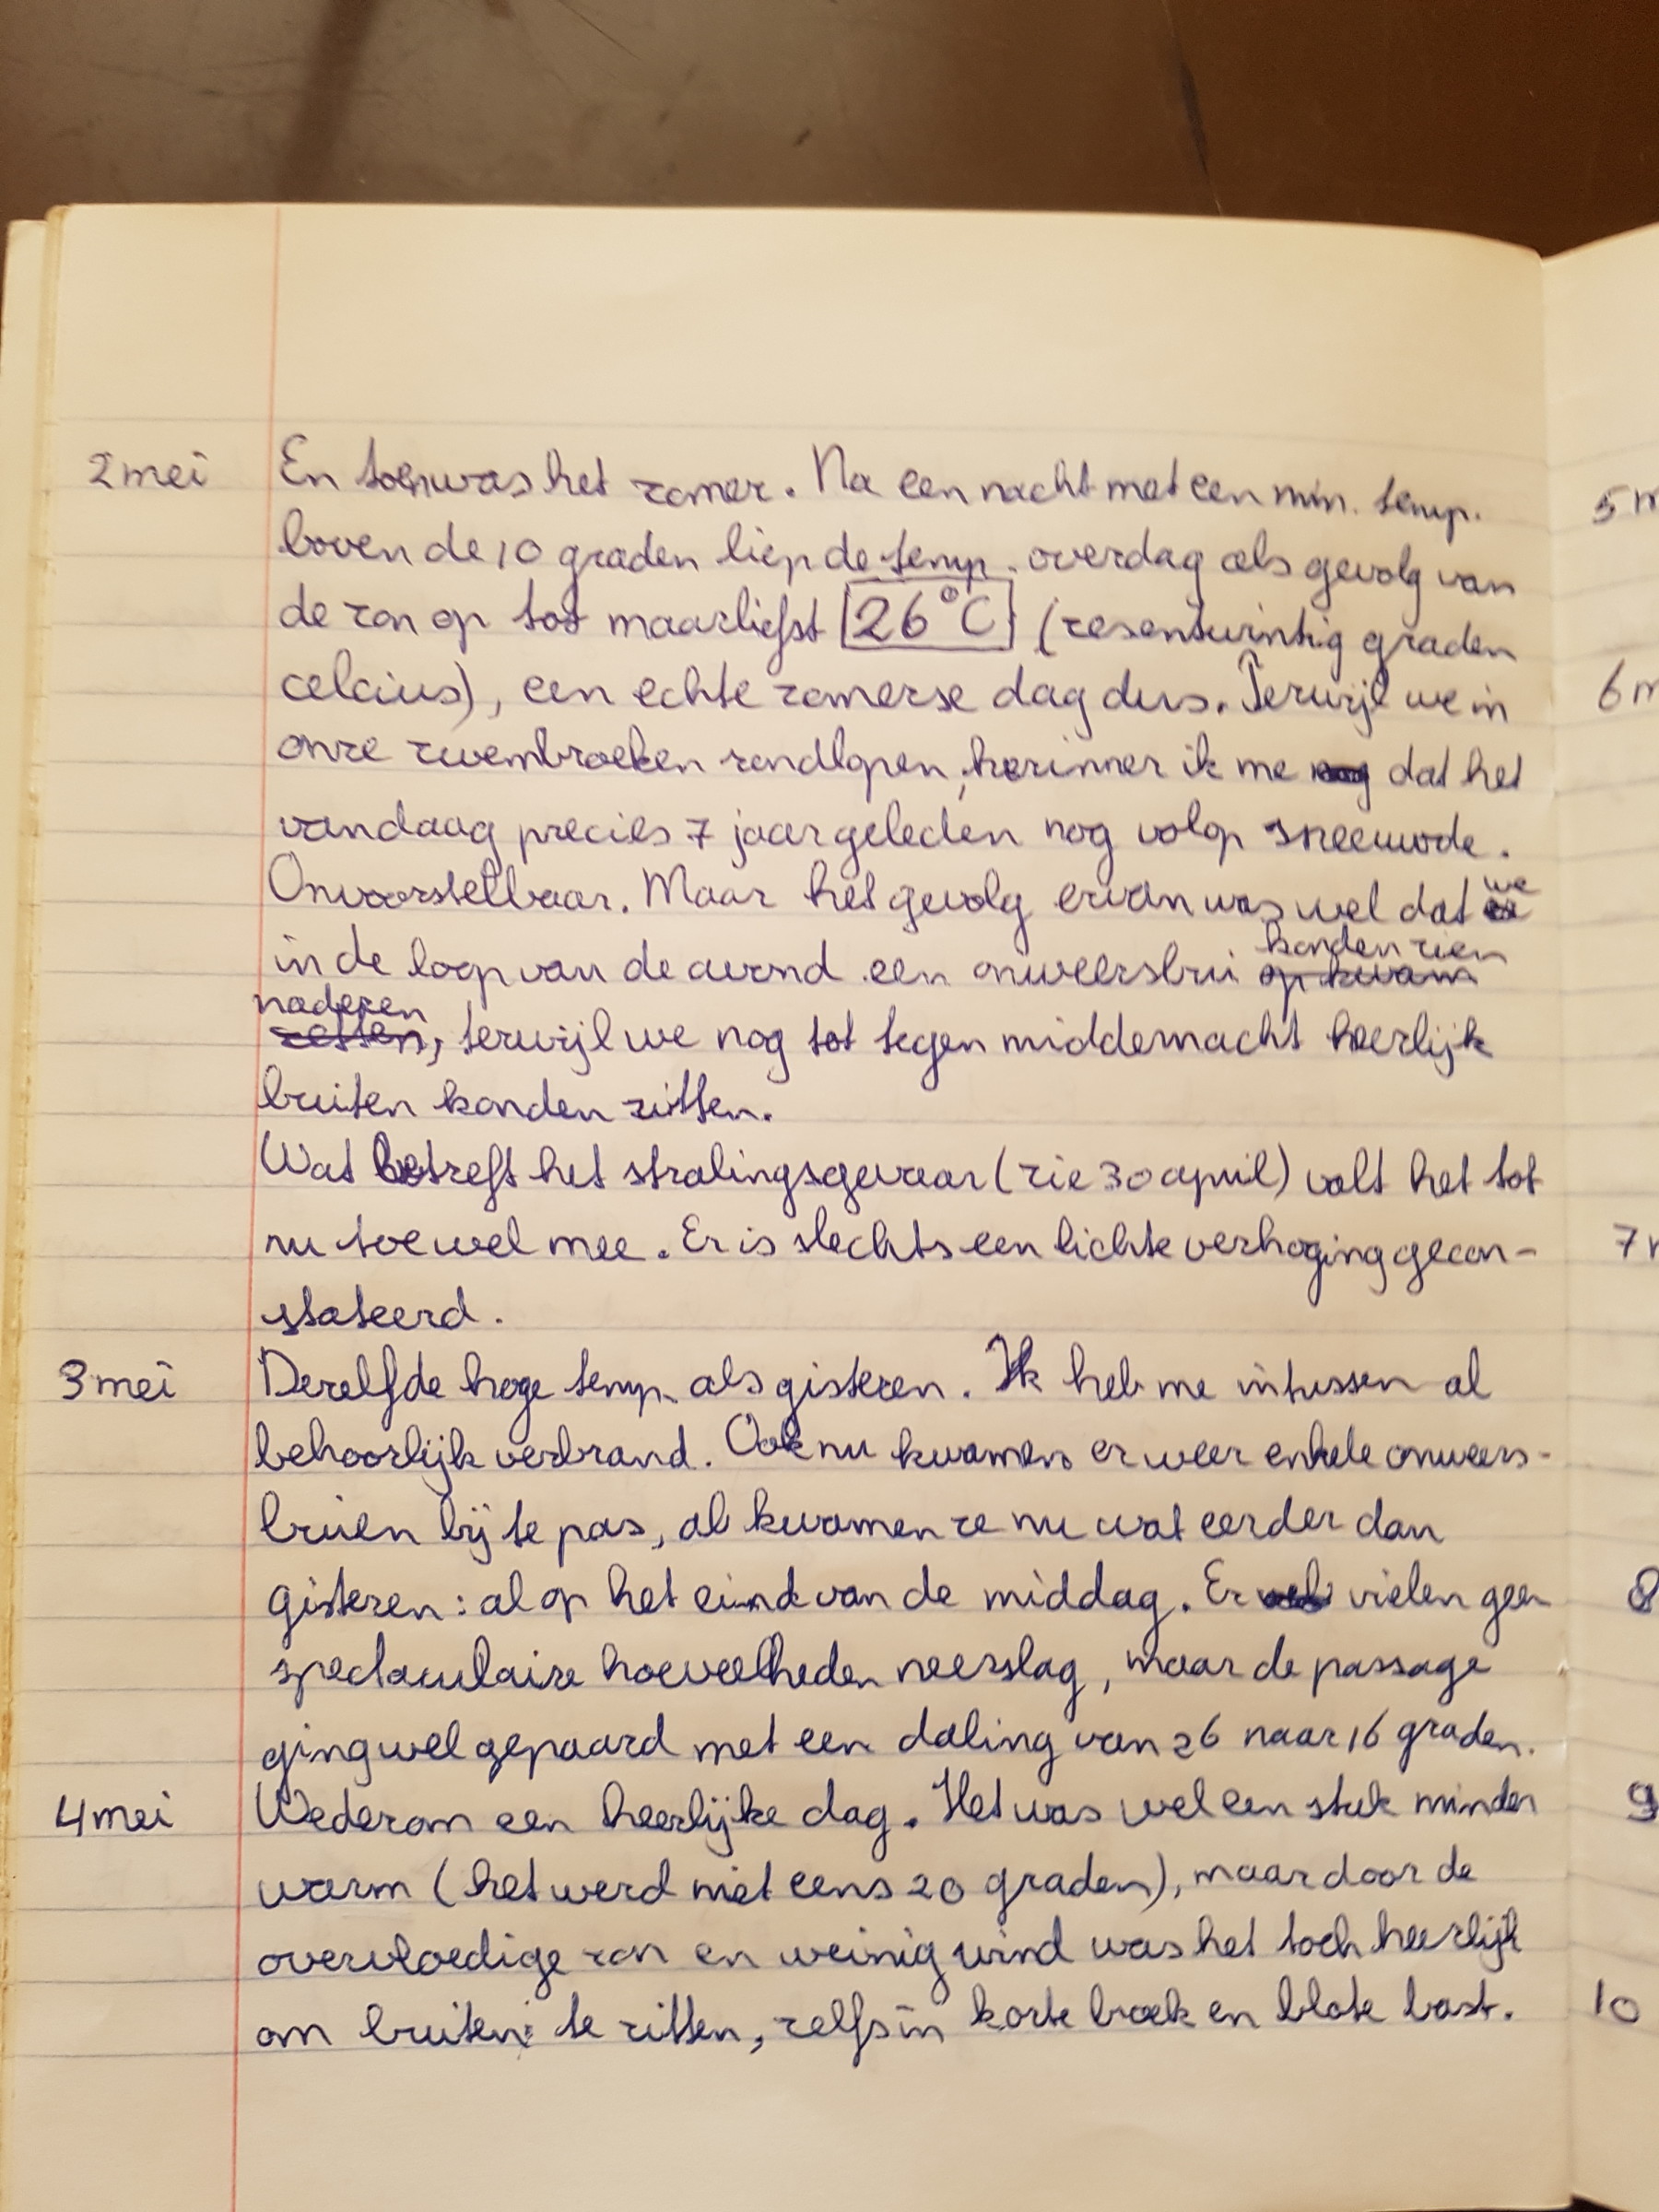 2 mei En toen was het zomer. Na een nacht met een min. temp.
boven de 10 graden liep de temp. overdag als gevolg van
de zon op tot maarliefst 26°C (zesentwintig graden
celcius), een echte zomerse dag dus. Terwijl we in
onze zwembroeken rondlopen, herinner ik me nog dat het
vandaag precies 7 jaar geleden nog volop sneeuwde.
Onvoorstelbaar. Maar het gevolg ervan was wel dat we
in de loop van de avond een onweersbui op kwam konden zien
naderen
zetten, terwijl we nog tot tegen middernacht heerlijk
buiten konden zitten.
Wat betreft het stralingsgevaar (zie 30 april) valt het tot
nu toe wel mee. Er is slechts een lichte verhoging gecon-
stateerd.
3 mei Dezelfde hoge temp. als gisteren. Ik heb me intussen al
behoorlijk verbrand. Ook nu kwamen er weer enkele onweers-
buien bij te pas, al kwamen ze nu wat eerder dan
gisteren: al op het eind van de middag. Er vielen geen
spectaculaire hoeveelheden neerslag, maar de passage
ging wel gepaard met een daling van 26 naar 16 graden.
4 mei Wederom een heerlijke dag. Het was wel een stuk minder
warm (het werd niet eens 20 graden), maar door de
overvloedige zon en weinig wind was het toch heerlijk
om buiten te zitten, zelfs in korte broek en blote bast.
5 m
6 m
7
8
9
10